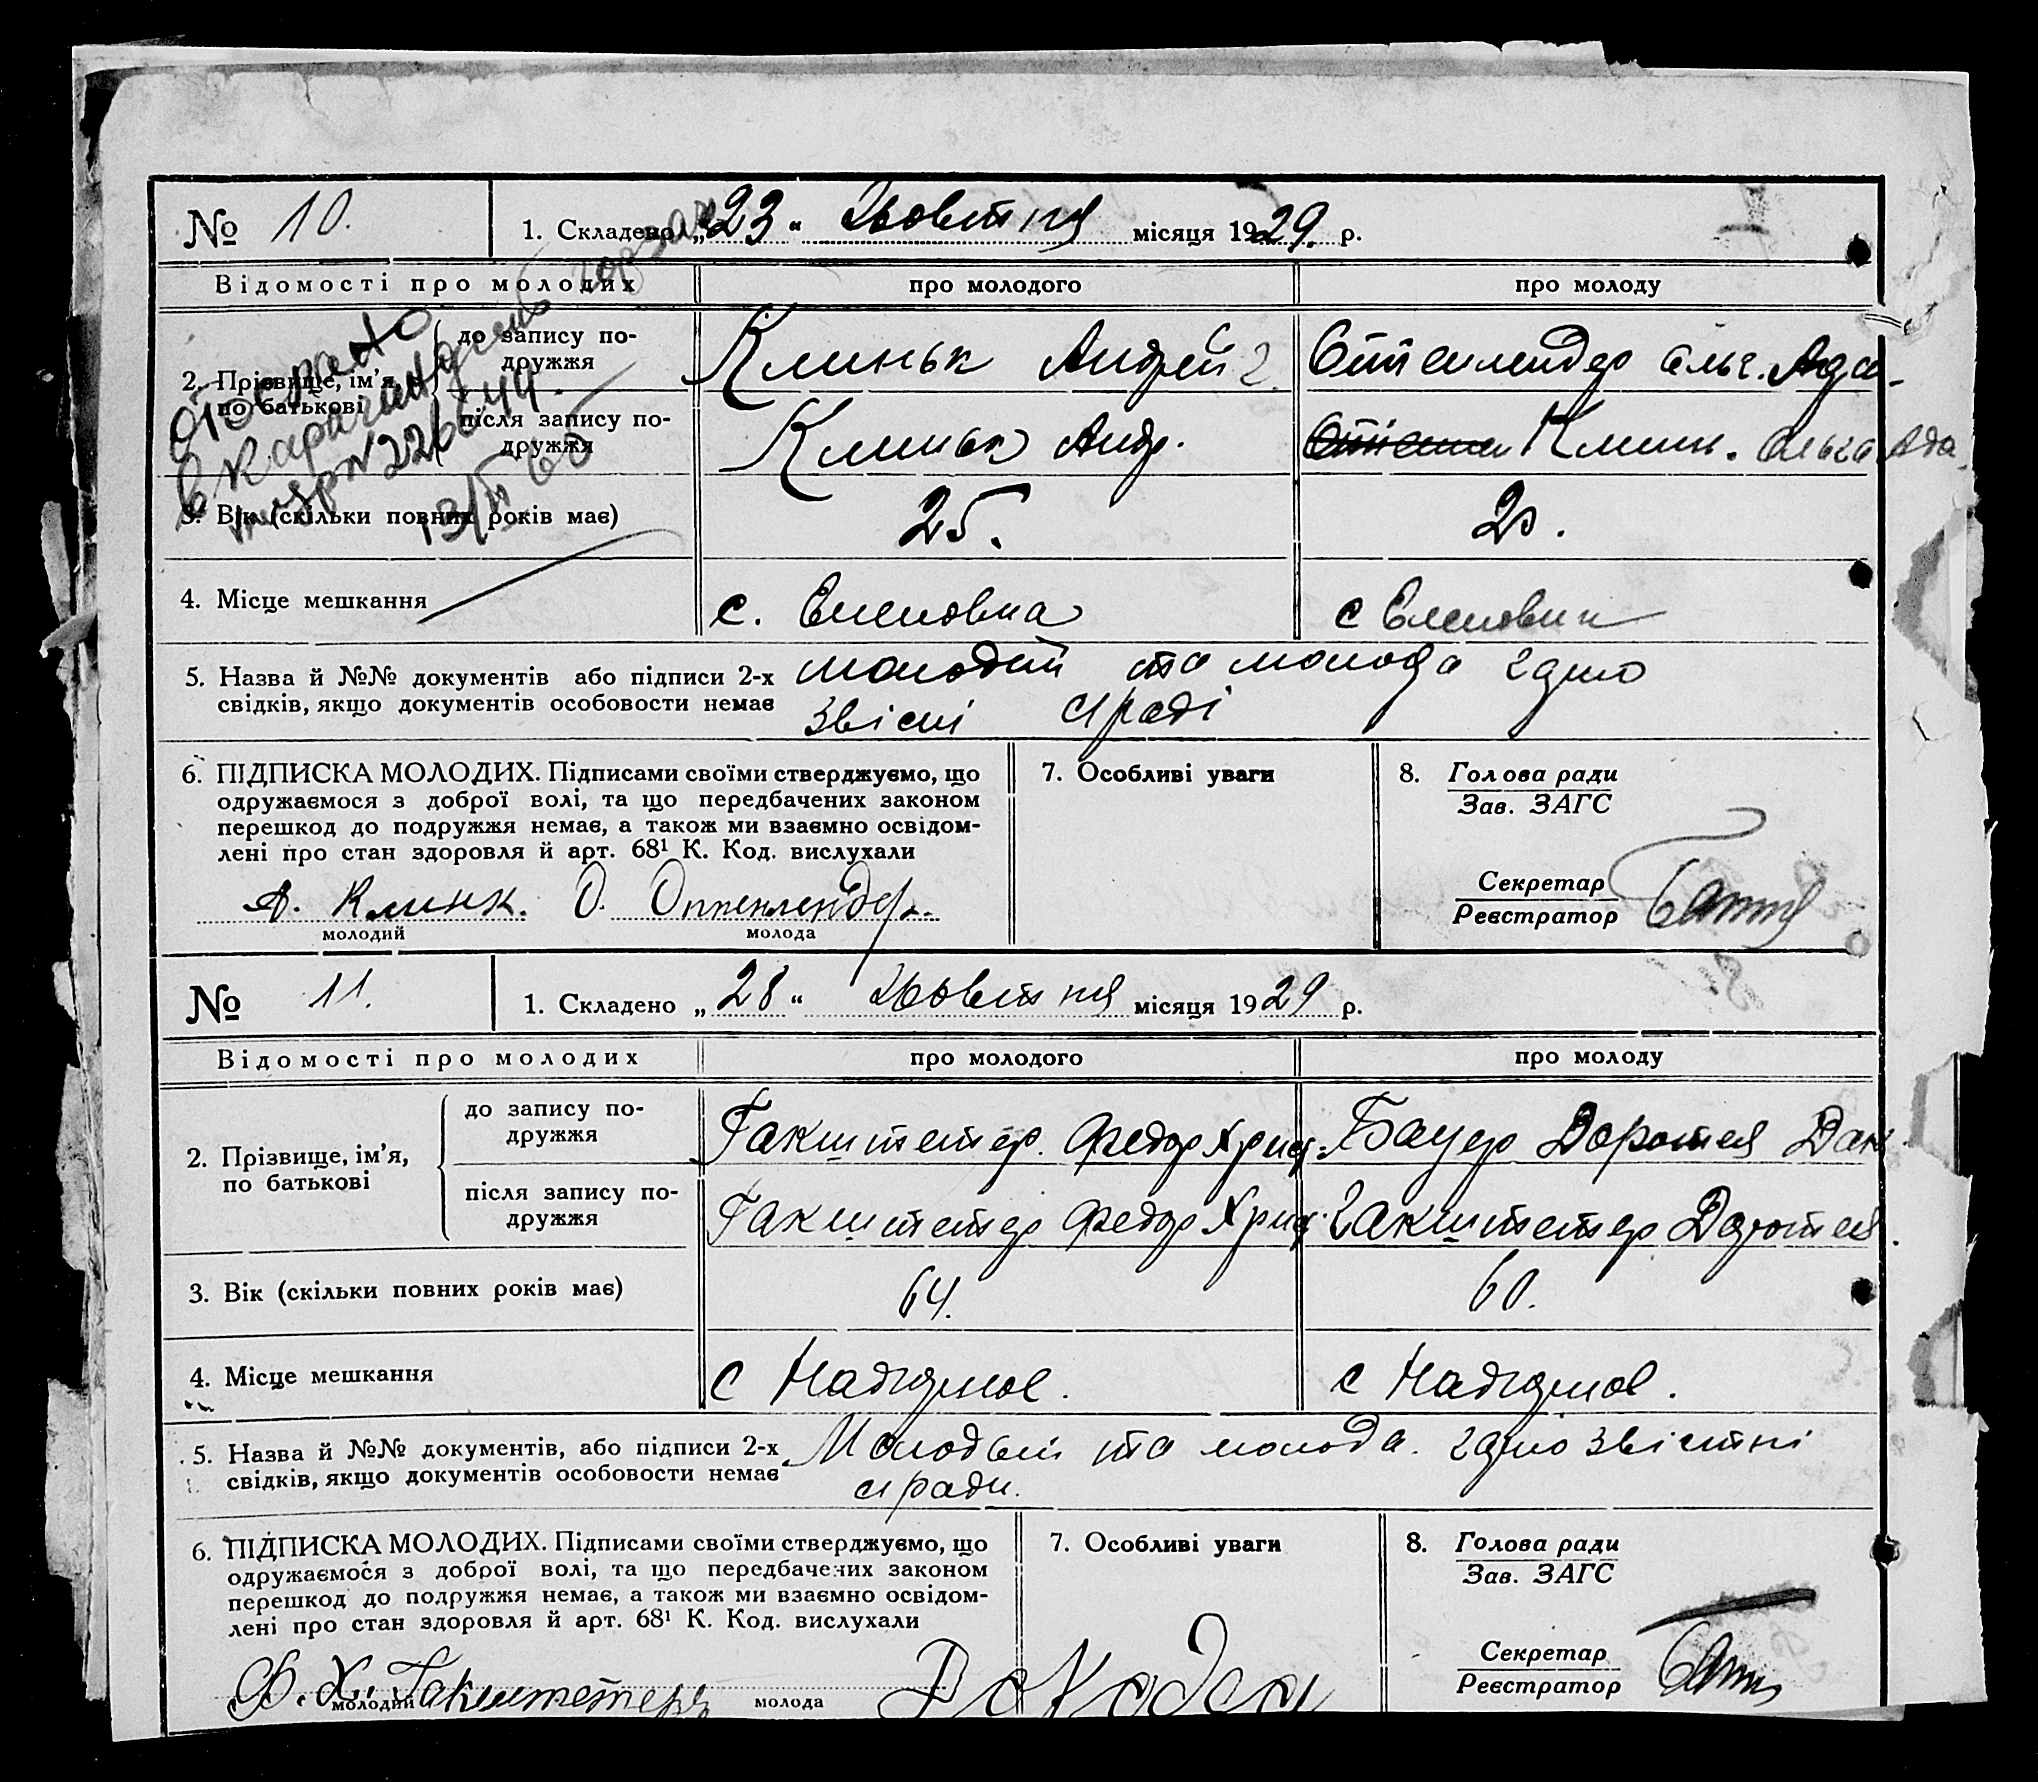 № 10. 1. Складено „23" Жовтня місяця 1929. р.
Відомості про молодих про молодого про молоду
2. Прізвище, ім'я, по батькові
до запису подружжя Клиньк Андрей Г. Оппенлендер Ольг. Ада-
після запису подружжя Клиньк Андр. Клинь. Ольга Ада.
отобрано
в Караганд
13/II 65
3. Вік (скільки повних років має) 25. 20.
4. Місце мешкання с. Еленовка с Еленовки
5. Назва й №№ документів або підписи 2-х молодий та молода гадно
свідків, якщо документів особовости немає звісні с/раді
6. ПІДПИСКА МОЛОДИХ. Підписами своїми стверджуємо, що
одружаємося з доброї волі, та що передбачених законом
перешкод до подружжя немає, а також ми взаємно освідом-
лені про стан здоровля й арт. 68¹ К. Код. вислухали
А. Клинк. О. Оппенлендер.
молодий молода
7. Особливі уваги
8. Голова ради
Зав. ЗАГС
Секретар
Реєстратор
№ 11. 1. Складено „28" Жовтня місяця 1929 р.
Відомості про молодих про молодого про молоду
2. Прізвище, ім'я,
по батькові
до запису по-
дружжя
Гакштетер. Федор Христ. Бауер Доротея Дан
після запису по-
дружжя
Гакштетер Федор Христ. Гакштетер Доротея.
3. Вік (скільки повних років має) 64. 60.
4. Місце мешкання с Надеждов. с Надеждов.
5. Назва й №№ документів, або підписи 2-х Молодый та молода. гадно звістні
свідків, якщо документів особовости немає с/ради.
6. ПІДПИСКА МОЛОДИХ. Підписами своїми стверджуємо, що
одружаємося з доброї волі, та що передбачених законом
перешкод до подружжя немає, а також ми взаємно освідом-
лені про стан здоровля й арт. 68¹ К. Код. вислухали
Ф. Х. Гакштетеръ
молодий молода
7. Особливі уваги
8. Голова ради
Зав. ЗАГС
Секретар
Реєстратор